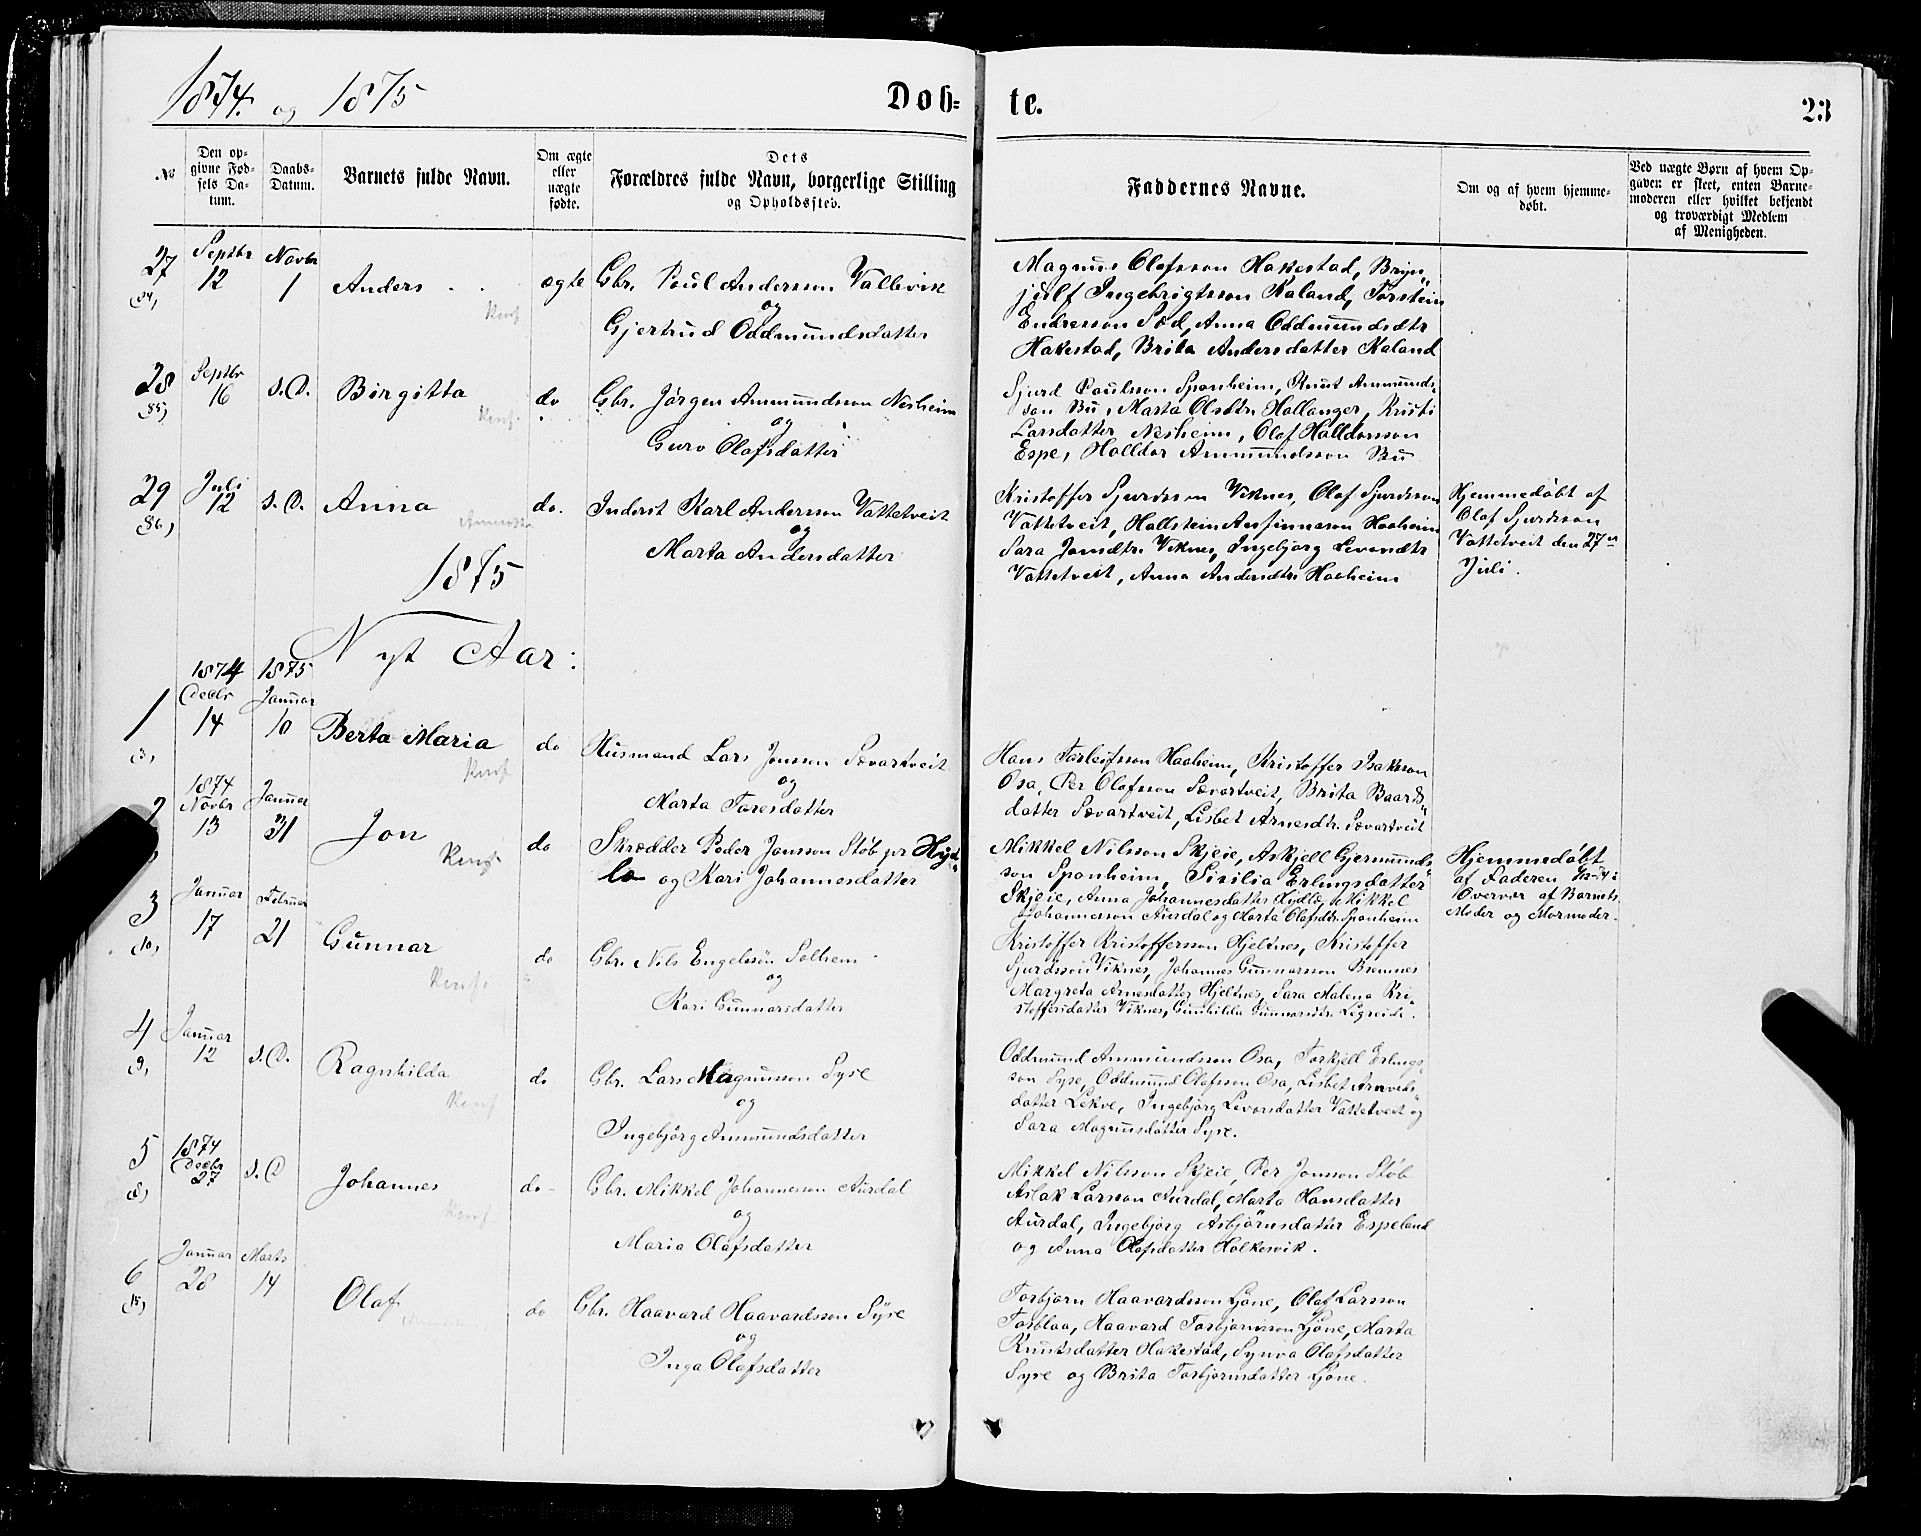 1874. og 1875
Døb=
te.
23
No
Den op-
givne Fød-
sels Da-
tum.
Daabs-
Datum.
Barnets fulde Navn.
Om ægte
eller
uægte
fødte.
Dets
Forældres fulde Navn, borgerlige Stilling
og Opholdssted.
Faddernes Navne.
Om og af hvem hjemme-
døbt.
Ved uægte Børn af hvem Op-
gaven er skeet, enten Barne-
moderen eller hvilket bekjendt
og troværdigt Medlem
af Menigheden.
27
(84)
Septbr
12
Novbr
1
Anders
Konf
ægte
Gbr. Poul Andersson Vallevik
og
Gjertrud Oddmundsdatter
Magnus Olafsson Hakestad, Bryn„
julf Ingebrigtsson Kaland, Torstein
Endresson Sød, Anna Oddmundsdtr
Hakestad, Brita Andersdatter Kaland
28
(85)
Septbr
16
s. D.
Birgitta
Konf.
do
Gbr. Jørgen Ammundson Nesheim
og
Guro Olafsdatter
Sjurd Poulsson Sponheim, Knut Ammunds-
son Bu, Marta Olsdtr Hallanger, Kristi
Larsdatter Nesheim, Olaf Halldorsson
Espe, Halldor Ammundsson Bu
29
(86)
Juli
12
s. D.
Anna
do.
Inderst Karl Andersson Vattetveit
og
Marta Andersdatter
Kristoffer Sjurdsson Viknes, Olaf Sjurdsson
Vattetveit, Hallstein Anfinnsson Haaheim
Sara Jonsdtr. Viknes, Ingebjørg Levorsdtr
Vattetveit, Anna Andersdtr. Haaheim
Hjemmedøbt af
Olaf Sjurdsson
Vattetveit den 27de
Juli.
1875
Nyt Aar:
1
(3)
1874
Decbr
14
1875
Januar
10
Berta Maria
Konf
do
Husmand Lars Jonsson Sævartveit
og
Marta Toresdatter
Hans Torleifsson Haaheim, Kristoffer Isaksson
Osa, Per Olafsson Sævartveit, Brita Baards„
datter Sævartveit, Lisbet Arnesdtr. Sævartveit
2
1874
Novbr
13
Januar
31
Jon
Konf.
do
Skrædder Peder Jonsson Støb pr Hyd„
la og Kari Johannesdatter
Mikkel Nilsson Skjeie, Askjell Gjermunds„
son Sponheim, Sisilia Erlingsdatter
Skjeie, Anna Johannesdatter Hydle, Mikkel
Johannesson Aurdal og Marta Olafsdtr. Sponheim
Hjemmedøbt
af Faderen
Overvær af Barnets
Moder og Mormoder.
3
(10)
Januar
17
Februar
21
Gunnar
Konf.
do
Gbr. Nils Engelsson Solhem
og
Kari Gunnarsdatter
Kristoffer Kristofferson Hjeltnes, Kristoffer
Sjurdsson Viknes, Johannes Gunnarsson Bremnes
Margreta Arnesdatter Hjeltnes, Sara Malena Kri-
stoffersdatter Viknes, Gunhilda Gunnarsdtr. Legreide.
4
(9)
Januar
12
s. D.
Ragnhilda
Konf
do
Gbr. Lars Magnusson Syse
og
Ingebjørg Ammundsdatter
Oddmund Ammundsson Osa, Torkjell Erlings„
son Syse, Oddmund Olafsson Osa, Lisbet Arnvids„
datter Lekve, Ingebjørg Levorsdatter Vattetveit og
Sara Magnusdatter Syse.
5
(8)
1874
Decbr
27
s. D
Johannes
Konf.
do
Gbr. Mikkel Johannesson Aurdal
og
Maria Olafsdatter
Mikkel Nilsson Skjeie, Per Jonsson Støb
Aslak Larsson Aurdal, Marta Hansdatter
Aurdal, Ingebjørg Asbjørnsdatter Espeland
og Anna Olafsdatter Holkesvik.
6
(15)
Januar
28
Marts
14
Olaf
do
Gbr. Haavard Haavardsson Syse
og
Inga Olafsdatter
Torbjørn Haavardsson Ljone, Olaf Larsson
Torblaa, Haavard Torbjørnsson Ljone, Marta
Knutsdatter Hakestad, Synva Olafsdatter
Syse og Brita Torbjørnsdatter Ljone.